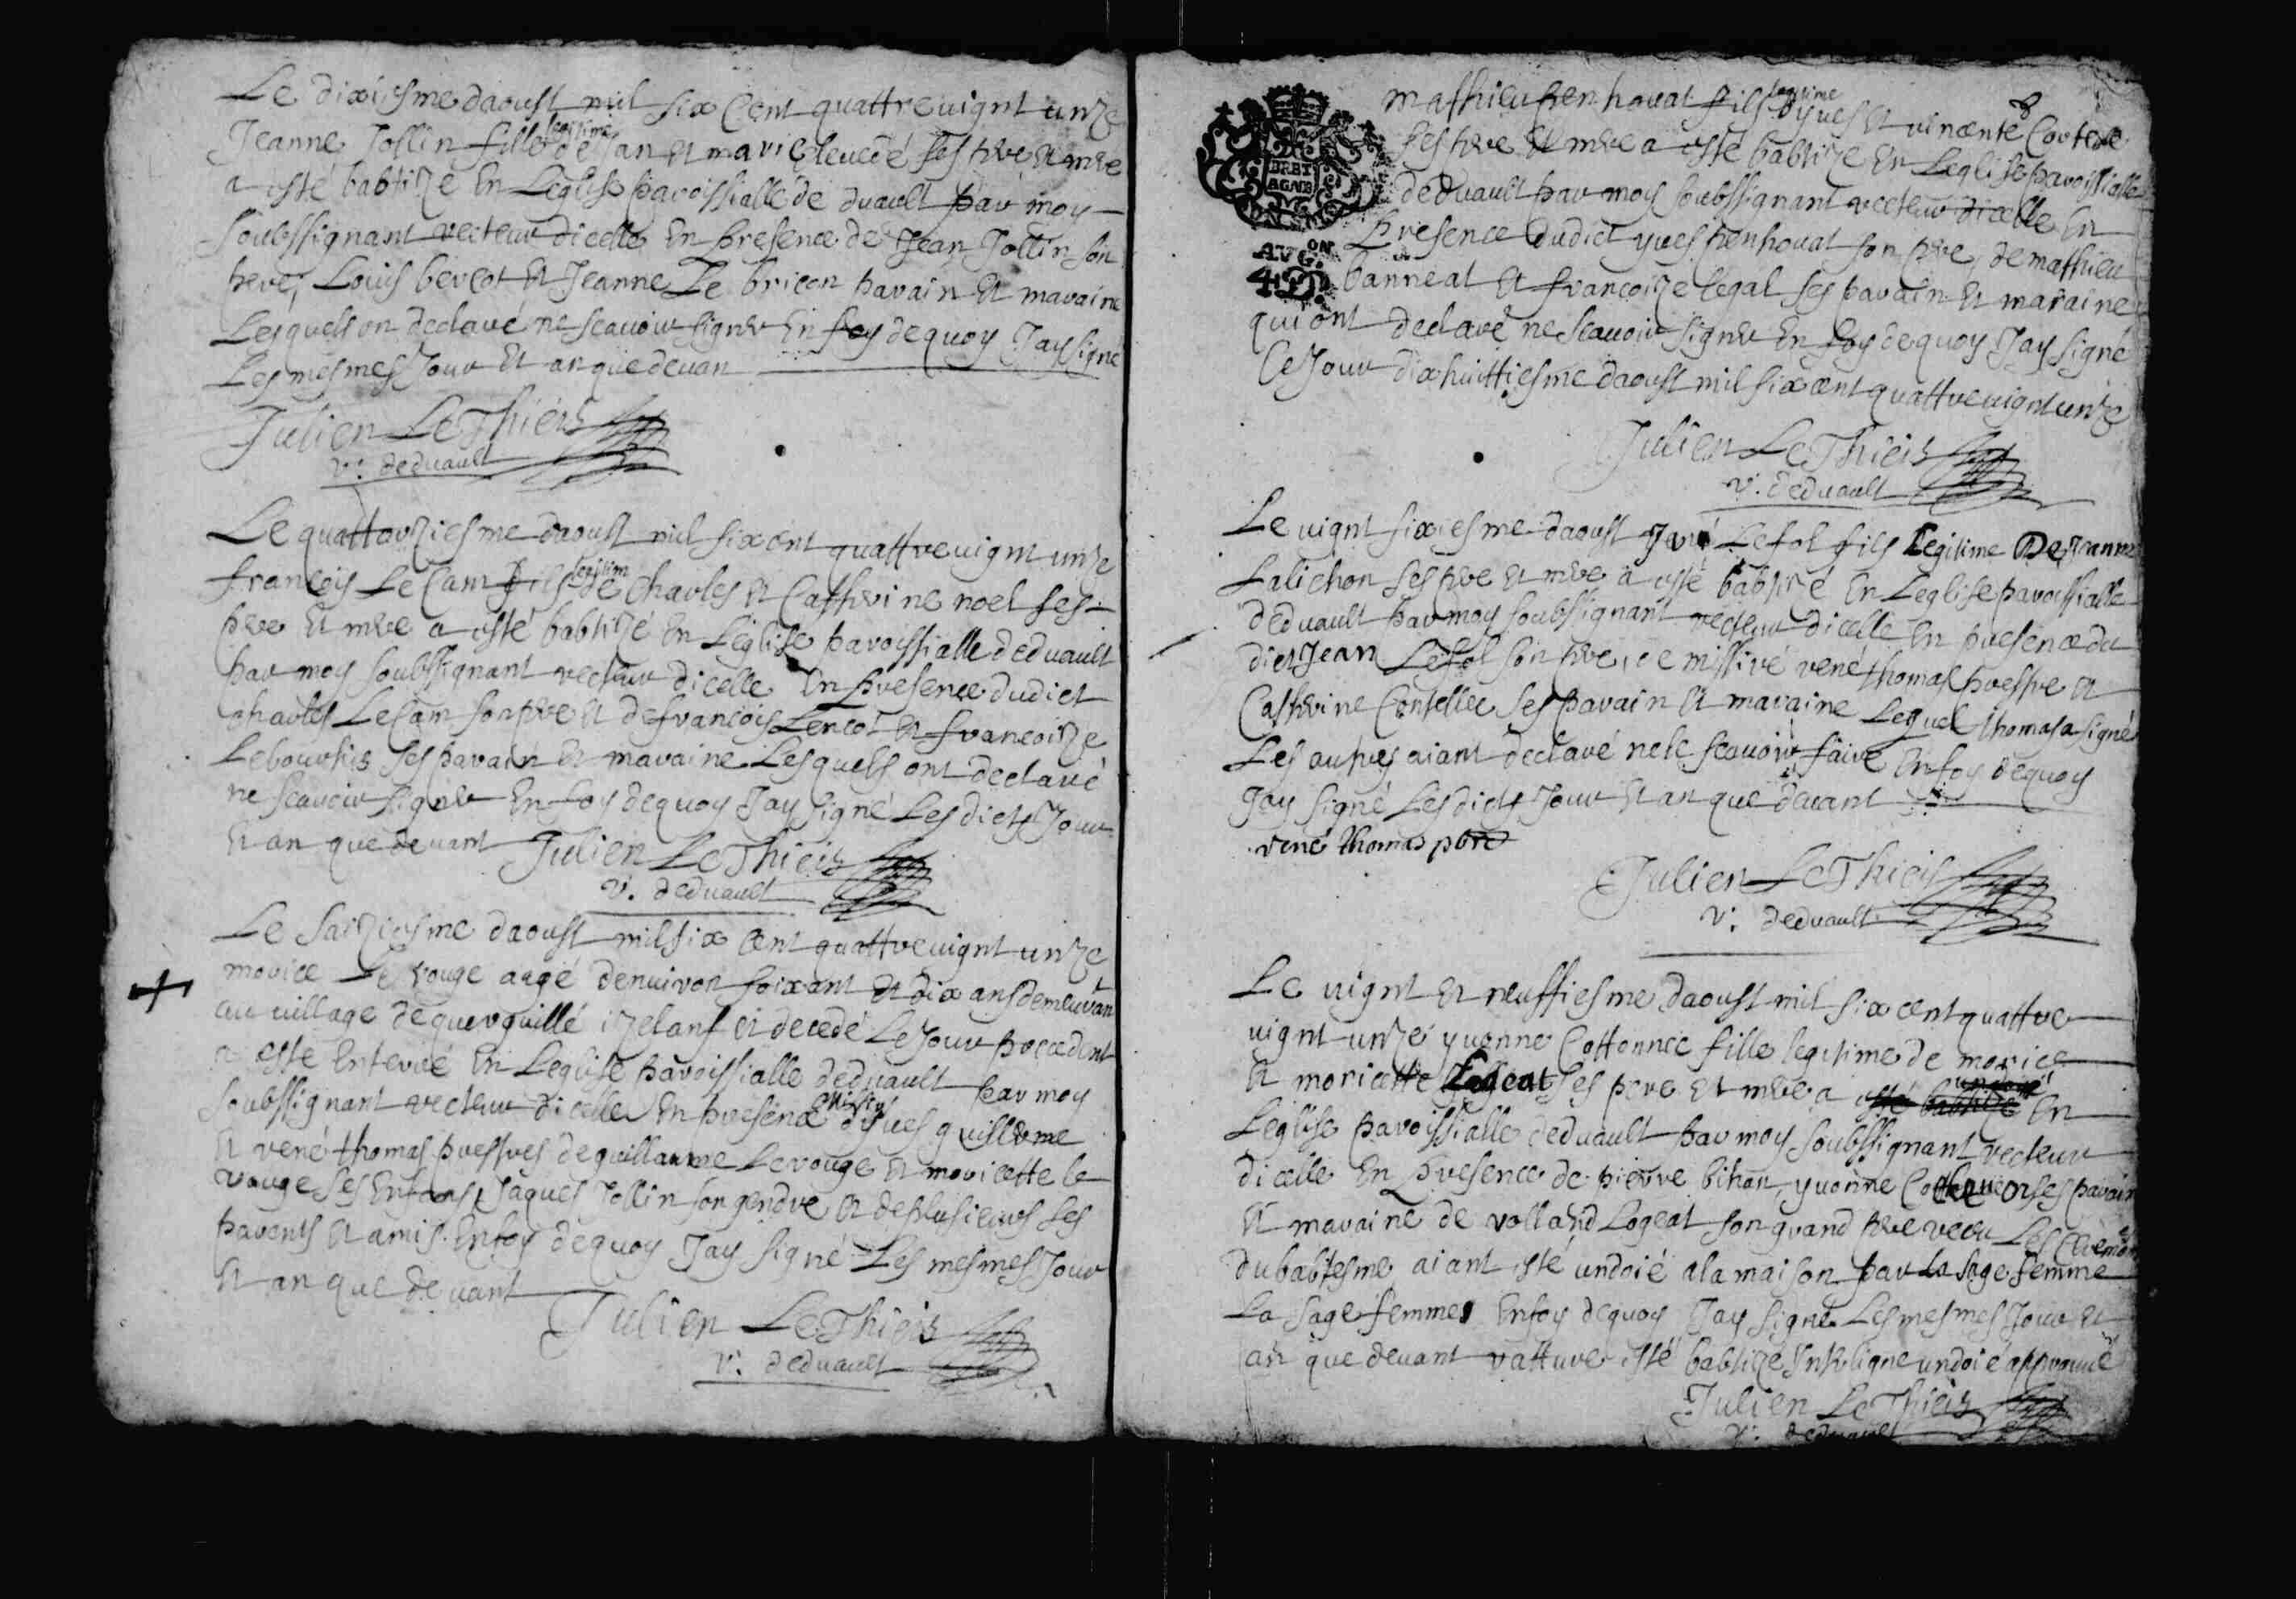 Le dixiesme daoust mil six cent quattre vignt unze
Jeanne Jollin fille legitime de Jan et marie levede ses pere et mere
a esté babtizé en Leglise paroissialle de duault par moy
soubssignant recteur dicelle en presence de Jean Jollin son
pere, Louis bercot et Jeanne Le bricon parain et maraine
Lesquels on declaré ne scauoir signer en foy dequoy Jay signé
Les mesmes Jour et an que deuan
Julien Le Thieis
r. de duault
Le quattorziesme daoust mil six cent quattre vignt unze
francois Le Cam fils legitim de charles et Catherine noel ses
pere et mere a esté babtizé en Leglise paroissialle de duault
par moy soubssignant recteur dicelle en presence dudict
charles Le Cam son pere et de francois Lencot et francoize
Lebourhis ses parain et maraine Lesquels ont declaré
ne scauoir signer en foy dequoy Jay signé Les dicts Jour
et an que deuant Julien Le Thieis
r. de duault
Le saiziesme daoust mil six cent quattre vignt unze
morice Le rouge aagé denuiron soixant et dix ans demeuran
au village de querguillé izelans et decedé Le Jour precedent
a esté enterré en Leglise paroissialle de duault par moy
soubssignant recteur dicelle en presence de missires yues guillerme
et rené thomas prestres de guillaume Le rouge et moricette le
rouge ses enfans, Jaques Jollin son gendre et de plusieurs ses
parents et amis. En foy dequoy Jay signé Les mesmes Jour
et an que deuant
Julien Le Thieis
r. de duault
BRET
AGNE
AVG.ON
4D.
mathieu penhouat fils legitime dyues et vincente
ses pere et mere a esté babtize en Leglise paroissialle
de duault par moy soubssignant recteur dicelle en
presence dudict yues penhouat son pere, de mathieu
banneat et francoize legal ses parain et maraine
qui ont declaré ne scauoir signer en foy de quoy Jay signé
Ce Jour dixhuittiesme daoust mil six cent quattre vignt unze
Julien Le Thieis
r. de duault
Le vignt sixiesme daoust Le fol fils Legitime De Jeanne
Lalichon ses pere et mere a esté babtizé en Leglise paroissialle
de duault par moy soubssignant recteur dicelle en presence du
dict Jean Le fol son pere, de missire rené thomas prestre et
Catherine Contellec ses parain et maraine Lequel thomas a signé
Les autres aiant declaré ne le scauoir faire en foy dequoy
Jay signé Lesdicts Jour et an que deuant
rené thomas pbre
Julien Le Thieis
r. de duault
Le vignt et neuffiesme daoust mil six cent quattre
vignt unze yuonne Cottonnec fille legitime de morice
et moricette Logeat ses pere et mere a esté babtizé undoié en
Leglise paroissialle de duault par moy soubssignant recteur
dicelle en presence de pierre bihan, yuonne ses parain
et maraine de rolland Logeat son grand pere receu Les ceremon
du babtesme aiant esté undoié a la maison par la sage femme
La sage femme en foy dequoy Jay signé Les mesmes Jour et
an que deuant ratture esté babtizé interligne undoié approuué
Julien Le Thieis
r. de duault